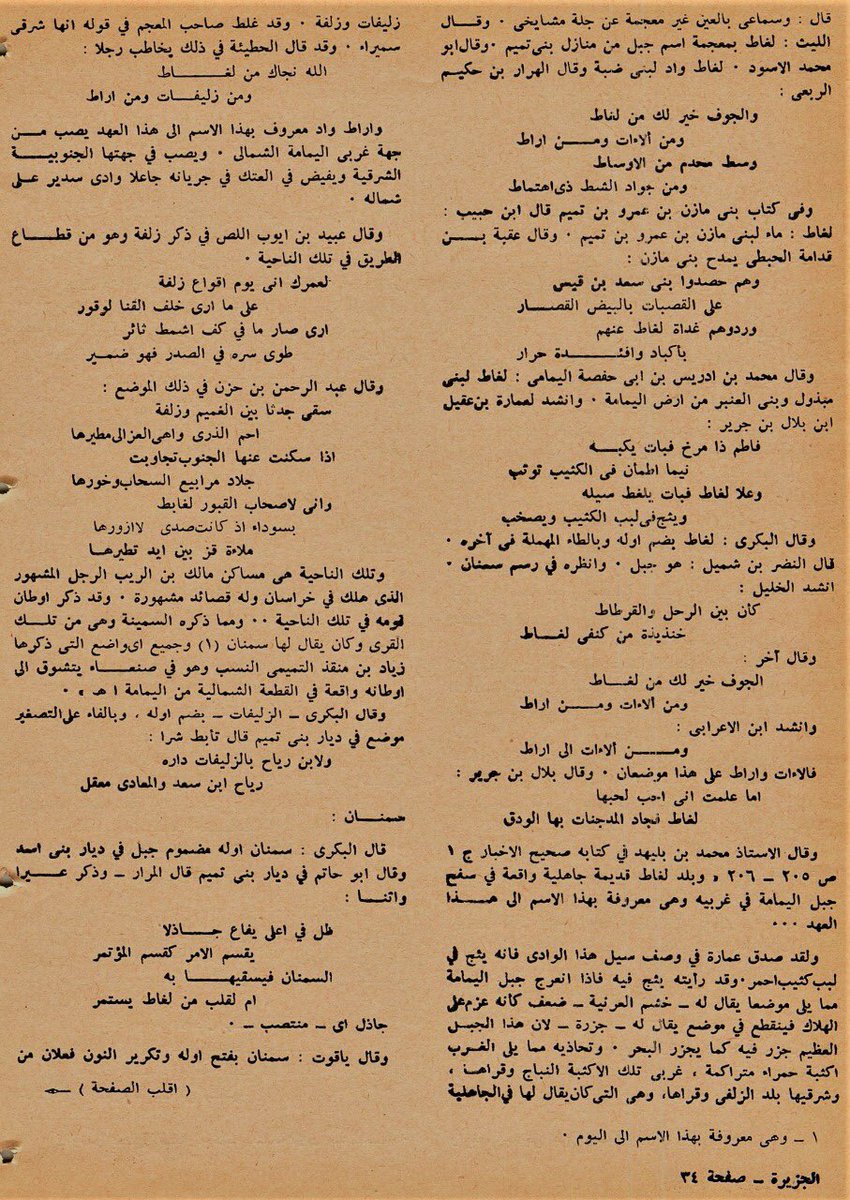 قال : وسماعى بالعين غير معجمة عن جلة مشايخى ٠ وقال
الليث : لغاط بمعجمة اسم جبل من منازل بنى تميم ٠وقال ابو
محمد الاسود ٠ لغاط واد لبنى ضبة وقال الهرار بن حكيم
الربعى :
والجوف خير لك من لغاط
ومن ألاءات ومن اراط
وسط محدم من الاوساط
ومن جواد الشط ذى اهتماط
وفى كتاب بنى مازن بن عمرو بن تميم قال ابن حبيب :
لغاط : ماء لبنى مازن بن عمرو بن تميم ٠ وقال عقبة بن
قدامة الحبطى يمدح بنى مازن :
وهم حصدوا بنى سعد بن قيس
على القصبات بالبيض القصار
وردوهم غداة لغاط عنهم
بأكباد وافئدة حرار
وقال محمد بن ادريس بن ابى حفصة اليمامى : لغاط لبنى
مبذول وبنى العنبر من ارض اليمامة ٠ وانشد لعمارة بن عقيل
ابن بلال بن جرير :
فاطم ذا مرخ فبات يكبه
نيما اطمان فى الكثيب توثب
وعلا لغاط فبات يلغط سيله
ويثج فى لبب الكثيب ويصخب
وقال البكرى : لغاط بضم اوله وبالطاء المهملة فى آخره ٠
قال النضر بن شميل : هو جبل ٠ وانظره في رسم سمنان ٠
انشد الخليل :
كأن بين الرحل والقرطاط
خنذيذة من كنفى لغاط
وقال آخر :
الجوف خير لك من لغاط
ومن ألاءات ومن اراط
وانشد ابن الاعرابى :
ومن ألاءات الى اراط
فالاءات واراط على هذا موضعان ٠ وقال بلال بن جرير :
اما علمت انى احب لحبها
لغاط فجاد المدجنات بها الودق
وقال الاستاذ محمد بن بليهد في كتابه صحيح الاخبار ج ١
ص ٢٠٥ ــ ٢٠٦ » وبلد لغاط قديمة جاهلية واقعة في سفح
جبل اليمامة في غربيه وهى معروفة بهذا الاسم الى هذا
العهد ٠٠٠
ولقد صدق عمارة في وصف سيل هذا الوادى فانه يثج في
لبب كثيب احمر٠ وقد رأيته يثج فيه فاذا انعرج جبل اليمامة
مما يلى موضعا يقال له ــ خشم العرنية ــ ضعف كانه عزم على
الهلاك فينقطع في موضع يقال له ــ جزرة ــ لان هذا الجبل
العظيم جزر فيه كما يجزر البحر ٠ وتحاذيه مما يلى الغرب
اكثبة حمراء متراكمة ، غربى تلك الاكثبة النباج وقراها ،
وشرقيها بلد الزلفى وقراها، وهى التى كان يقال لها في الجاهلية
١ ــ وهى معروفة بهذا الاسم الى اليوم ٠
الجزيرة ــ صفحة ٣٤
زليفات وزلفة ٠ وقد غلط صاحب المعجم في قوله انها شرقى
سميراء ٠ وقد قال الحطيئة في ذلك يخاطب رجلا :
الله نجاك من لغاط
ومن زليفات ومن اراط
واراط واد معروف بهذا الاسم الى هذا العهد يصب من
جهة غربى اليمامة الشمالى ٠ ويصب في جهتها الجنوبية
الشرقية ويفيض في العتك في جريانه جاعلا وادى سدير على
شماله ٠
وقال عبيد بن ايوب اللص في ذكر زلفة وهو من قطاع
الطريق في تلك الناحية ٠
لعمرك انى يوم اقواع زلفة
على ما ارى خلف القنا لوقور
ارى صار ما في كف اشمط ثائر
طوى سره في الصدر فهو ضمير
وقال عبد الرحمن بن حزن في ذلك الموضع :
سقى جدثا بين الغميم وزلفة
احم الذرى واهى العزالى مطيرها
اذا سكنت عنها الجنوب تجاوبت
جلاد مرابيع السحاب وخورها
وانى لاصحاب القبور لغابط
بسوداء اذ كانت صدى لاازورها
ملاءة قز بين ايد تطيرها
وتلك الناحية هى مساكن مالك بن الريب الرجل المشهور
الذى هلك في خراسان وله قصائد مشهورة ٠ وقد ذكر اوطان
قومه في تلك الناحية ٠٠ ومما ذكره السمينة وهى من تلك
القرى وكان يقال لها سمنان (١) وجميع اىواضع التى ذكرها
زياد بن منقذ التميمى النسب وهو في صنعاء يتشوق الى
اوطانه واقعة في القطعة الشمالية من اليمامة ا هـ » ٠
وقال البكرى ــ الزليفات ــ بضم اوله ، وبالفاء على التصغير
موضع في ديار بنى تميم قال تأبط شرا :
ولابن رياح بالزليفات داره
رياح ابن سعد والمعادى معقل
سمنان :
قال البكرى : سمنان اوله مضموم جبل في ديار بنى اسد
وقال ابو حاتم في ديار بنى تميم قال المرار ــ وذكر عيرا
واتنا :
ظل في اعلى يفاع جاذلا
يقسم الامر كقسم المؤتمر
السمنان فيسقيها به
ام لقلب من لغاط يستمر
جاذل اى ــ منتصب ــ ٠
وقال ياقوت : سمنان بفتح اوله وتكرير النون فعلان من
( اقلب الصفحة )